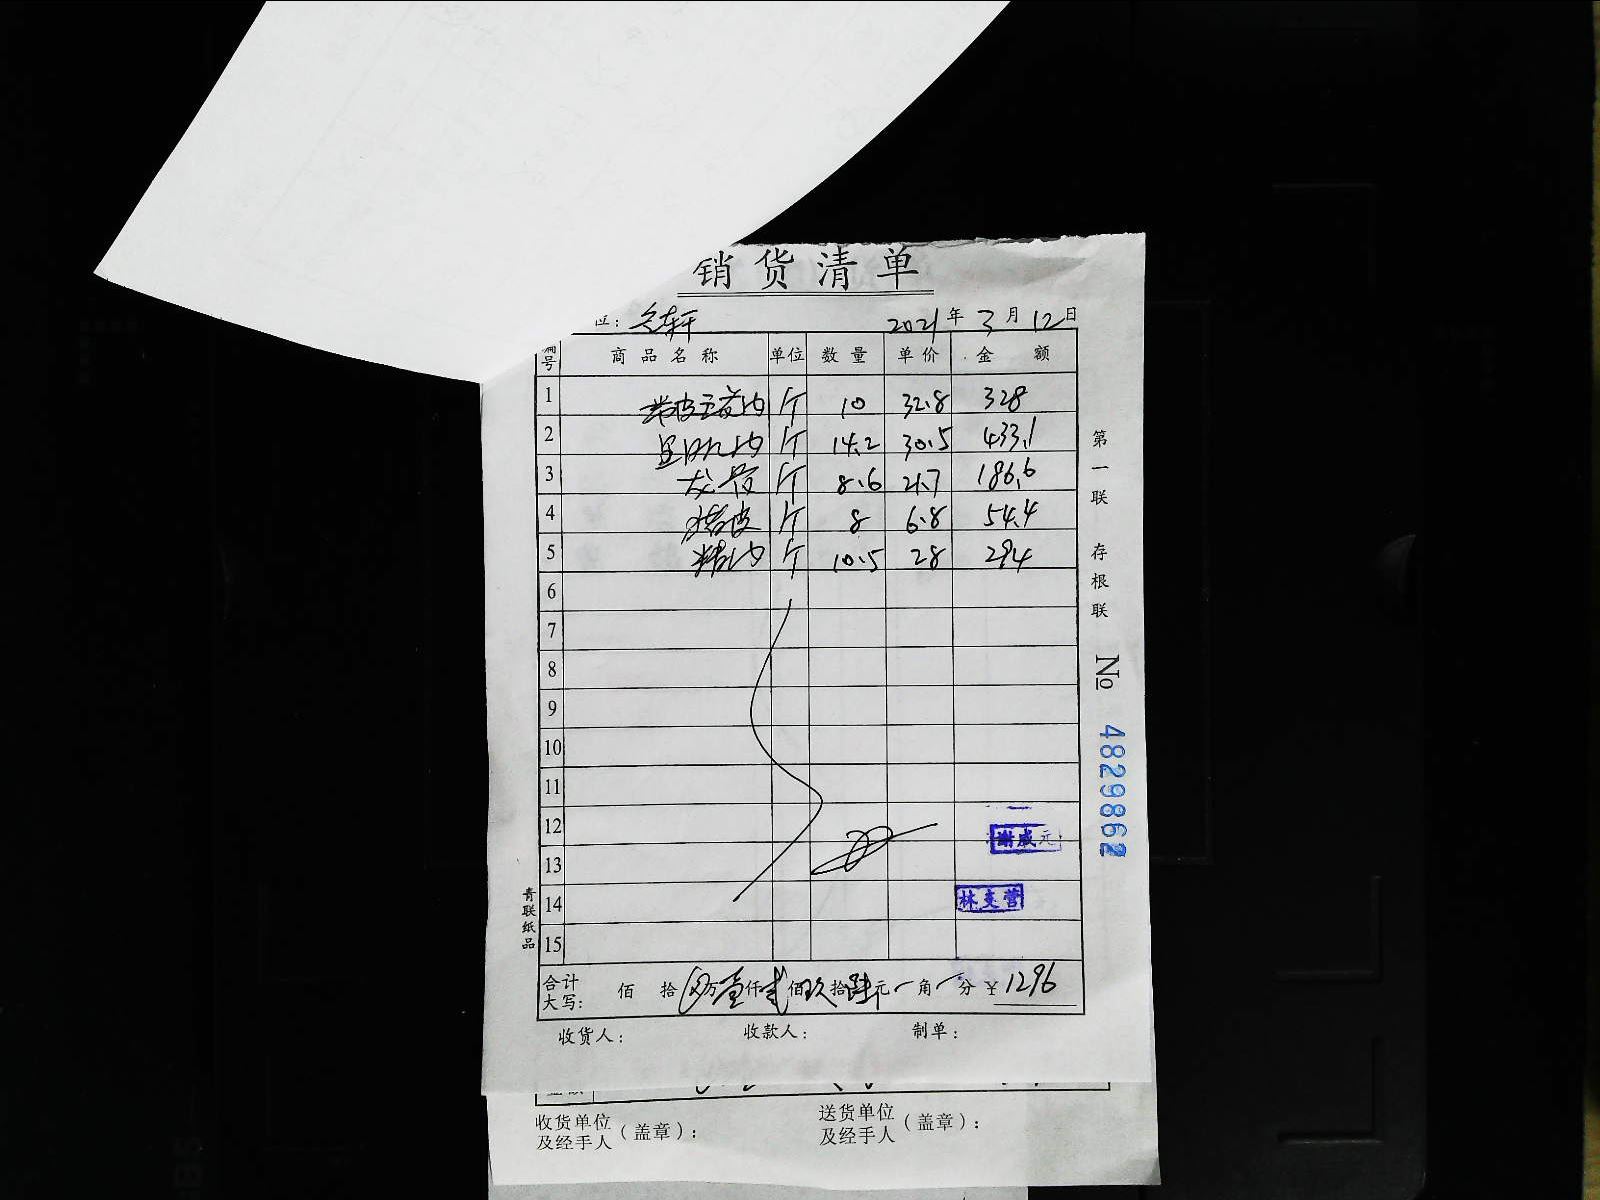 销货清单
位： 轩 2021年3月12日
编号 商品名称 单位 数量 单价 金额
1 带皮五花肉 斤 10 32.8 328
2 肉 斤 14.2 30.5 433.1
3 龙骨 斤 8.6 21.7 186.6
4 猪皮 斤 8 6.8 54.4
5 精肉 斤 10.5 28 294
6
7
8
9
10
11
12 谢威元
13
14 林支营
15
合计大写： 佰 拾 万壹仟贰佰玖拾陆元一角一分 ￥1296
收货人： 收款人： 制单：
第一联 存根联 No 4829862
青联纸品
收货单位及经手人（盖章）： 送货单位及经手人（盖章）：